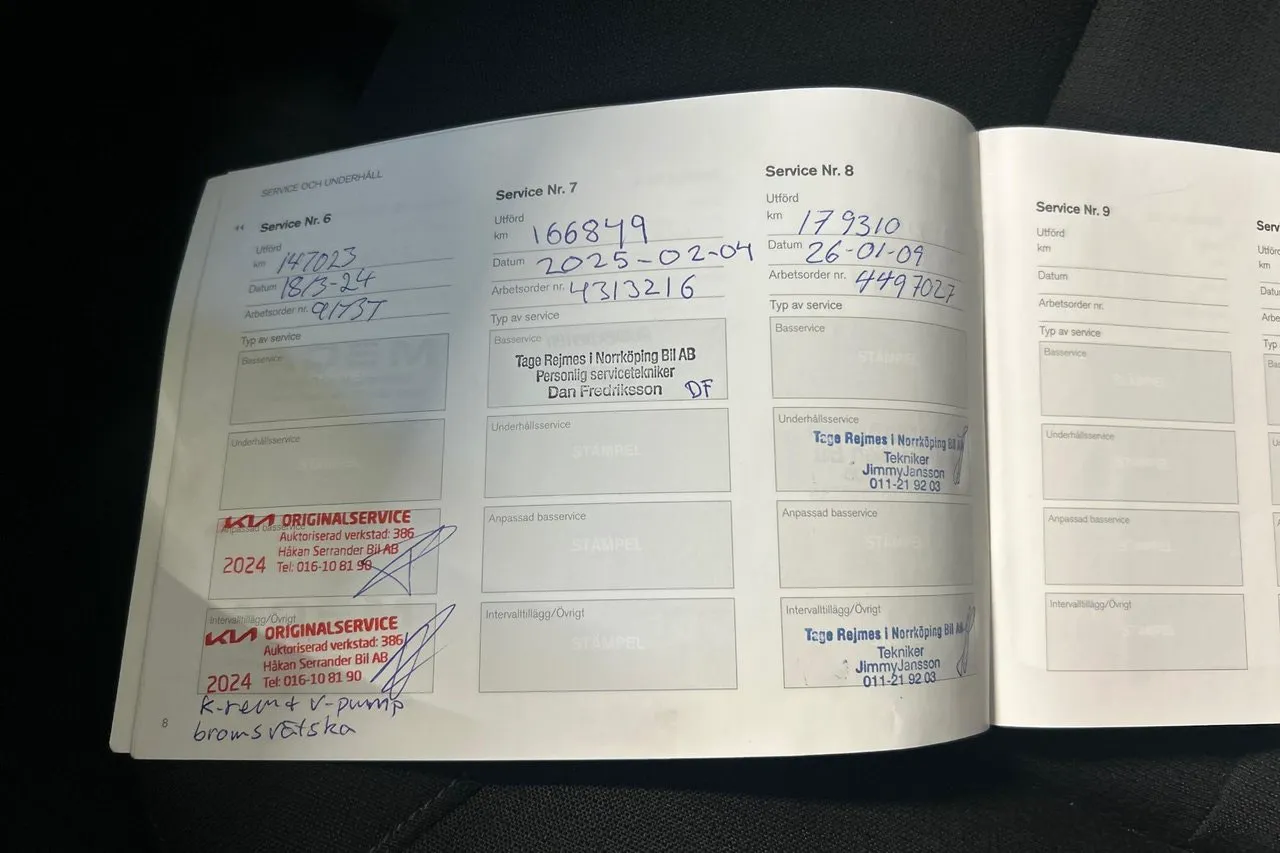 SERVICE OCH UNDERHÅLL
Service Nr. 6
Utförd
km 147023
Datum 18/3-24
Arbetsorder nr. 91737
Typ av service
Basservice
Underhållsservice
STÄMPEL
Anpassad basservice
KIA ORIGINALSERVICE
Auktoriserad verkstad: 386
Håkan Serrander Bil AB
2024 Tel: 016-10 81 90
Intervalltillägg/Övrigt
KIA ORIGINALSERVICE
Auktoriserad verkstad: 386
Håkan Serrander Bil AB
2024 Tel: 016-10 81 90
K-rem + V-pump
bromsvätska
8
Service Nr. 7
Utförd
km 166849
Datum 2025-02-04
Arbetsorder nr. 4313216
Typ av service
Basservice
Tage Rejmes i Norrköping Bil AB
Personlig servicetekniker
Dan Fredriksson DF
Underhållsservice
STÄMPEL
Anpassad basservice
STÄMPEL
Intervalltillägg/Övrigt
STÄMPEL
Service Nr. 8
Utförd
km 179310
Datum 26-01-09
Arbetsorder nr. 4497027
Typ av service
Basservice
STÄMPEL
Underhållsservice
Tage Rejmes i Norrköping Bil AB
Tekniker
JimmyJansson
011-21 92 03
Anpassad basservice
STÄMPEL
Intervalltillägg/Övrigt
Tage Rejmes i Norrköping Bil AB
Tekniker
JimmyJansson
011-21 92 03
Service Nr. 9
Utförd
km
Datum
Arbetsorder nr.
Typ av service
Basservice
STÄMPEL
Underhållsservice
STÄMPEL
Anpassad basservice
STÄMPEL
Intervalltillägg/Övrigt
STÄMPEL
km
Typ